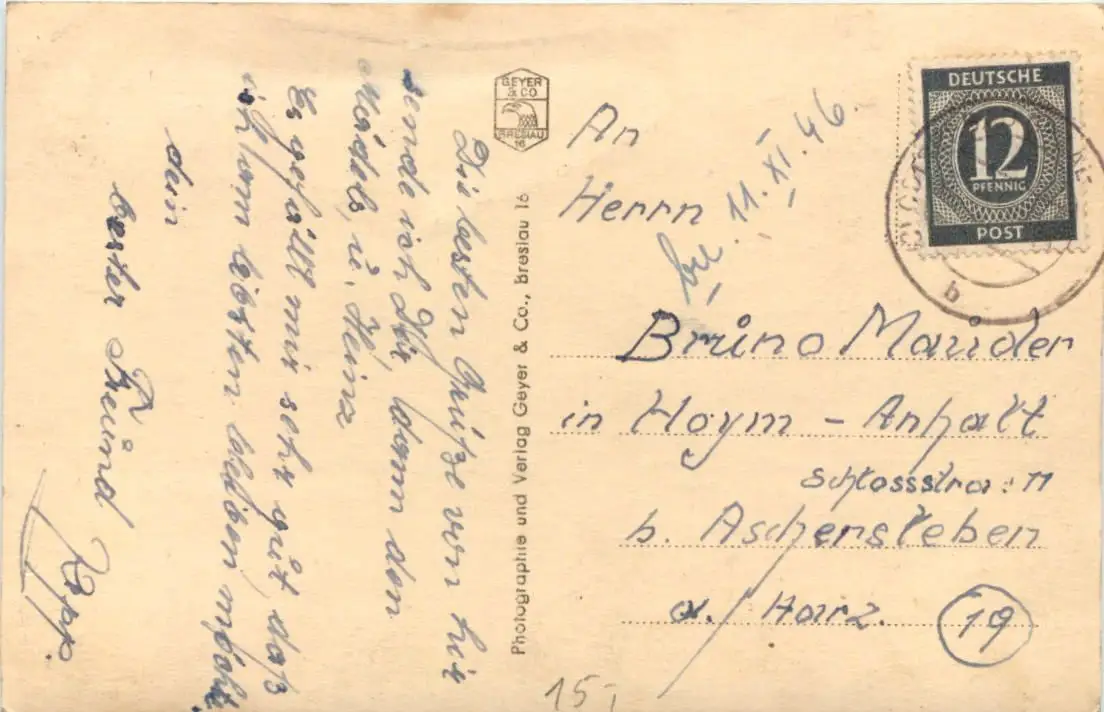 Die besten Grüße von hir
sende ich Dir, dann den
Mädels, u. Heinz
Es gefällt mir sehr gut, daß
ich am libsten bleiben möcht
dein
bester Freund
Kopp.
GEYER
& CO
BRESLAU
16
Photographie und Verlag Geyer & Co., Breslau 16
An
Herrn
11. XI. 46.
Bruno Mauder
in Hoym - Anhalt
Schlossstra: 11
b. Aschersleben
a. Harz.
19
15
DEUTSCHE
12
PFENNIG
POST
b